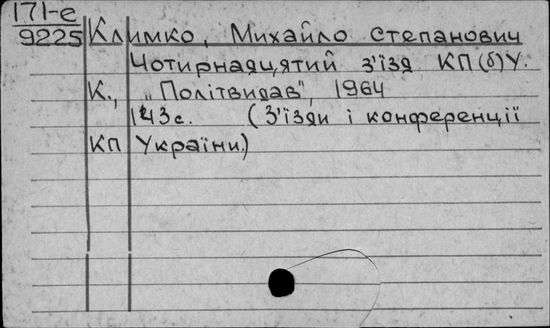 171-е
9225 Климко, Михайло Степанович
Чотирнадцятий з'їзд КП(б)У.
К., „Політвидав", 1964
143с. (З'їзди і конференції
КП України.)